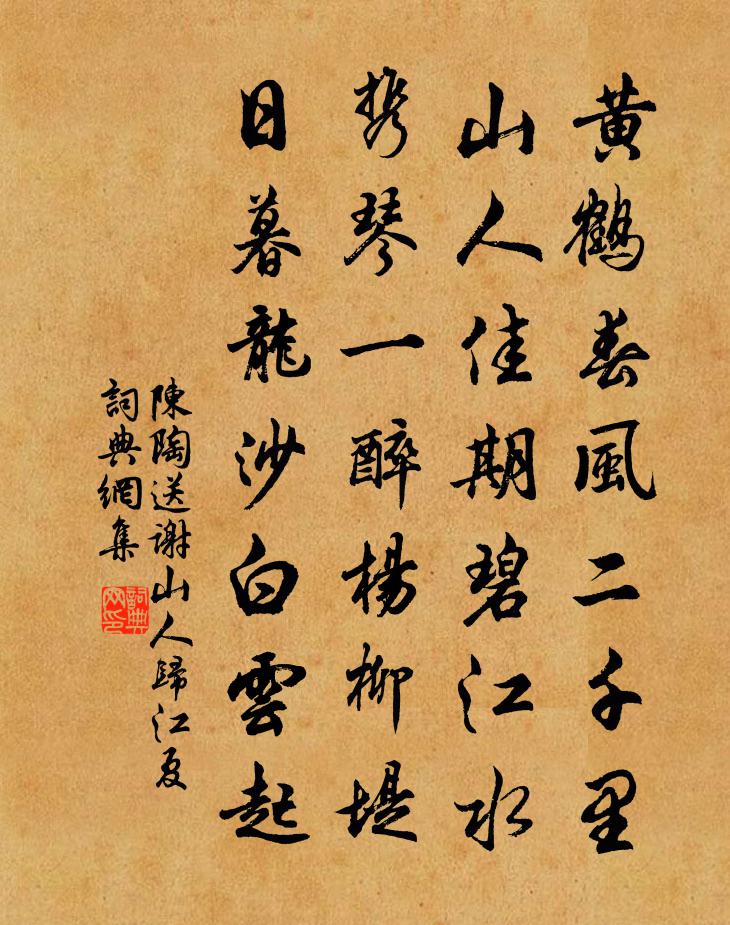 黄鶴春風二千里
山人佳期碧江水
携琴一醉楊柳堤
日暮龍沙白雲起
陳陶送謝山人歸江夏
詞典網集
詞典网印